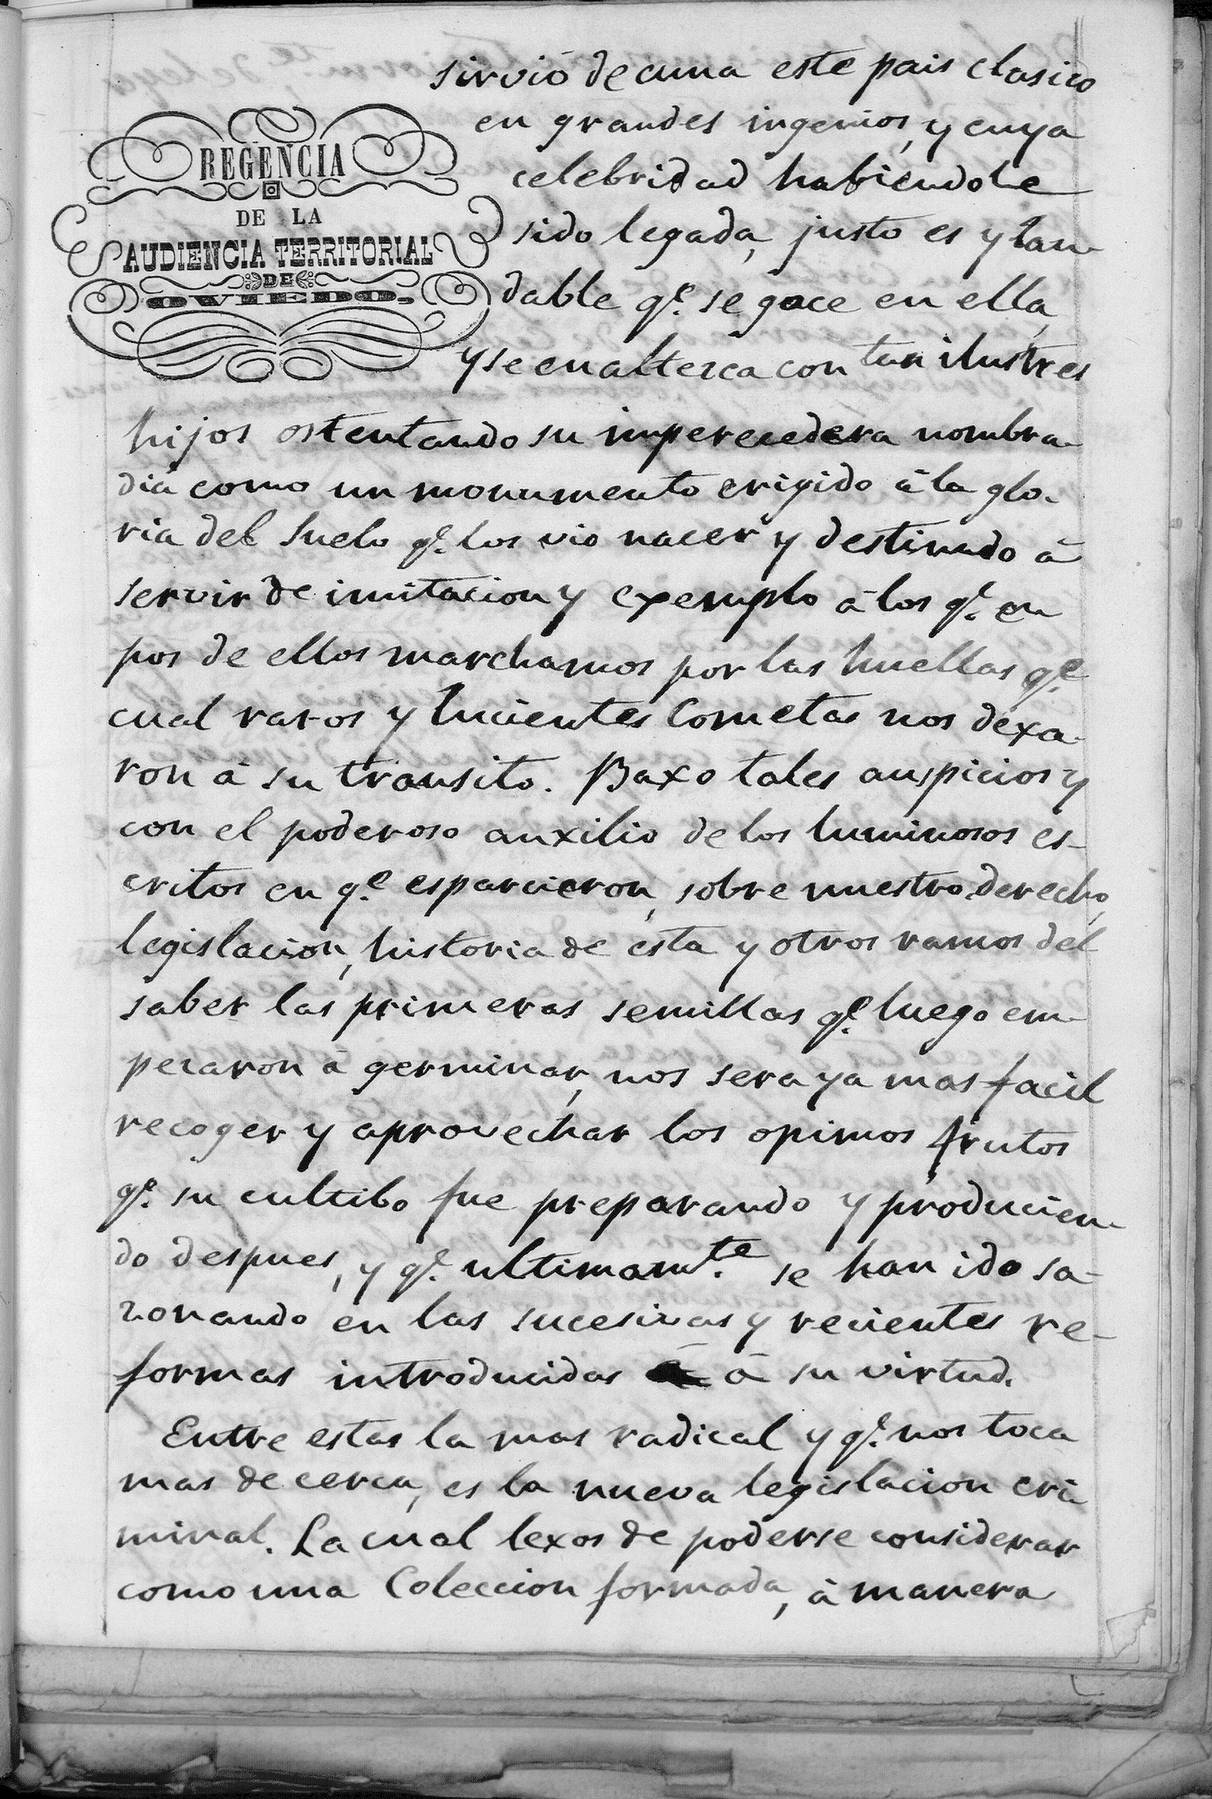 REGENCIA
DE LA
AUDIENCIA TERRITORIAL
DE
OVIEDO.
sirvió de cuna este pais clasico
en grandes ingenios, y cuya
celebridad habiendole
sido legada, justo es y lau-
dable q.e se goce en ella,
y se enalterca con tan ilustres
hijos ostentando su imperecedera nombra-
dia como un monumento erigido á la glo-
ria del suelo q.e los vio nacer y destinado á
servir de imitacion y exemplo á los q.e en
pos de ellos marchamos por las huellas q.e
cual raros y lucientes Cometas nos dexa-
ron á su transito. Baxo tales auspicios y
con el poderoso auxilio de los luminosos es-
critos en q.e esparcieron, sobre nuestro derecho,
legislacion, historia de esta y otros ramos del
saber las primeras semillas q.e luego em-
pezaron á germinar, nos sera ya mas facil
recoger y aprovechar los opimos frutos
q.e su cultibo fue preparando y producien-
do despues, y q.e ultimam.te se han ido sa-
zonando en las sucesivas y recientes re-
formas introducidas á su virtud.
Entre estas la mas radical y q.e nos toca
mas de cerca, es la nueva legislacion cri
minal. La cual lexos de poderse considerar
como una Coleccion formada, á manera